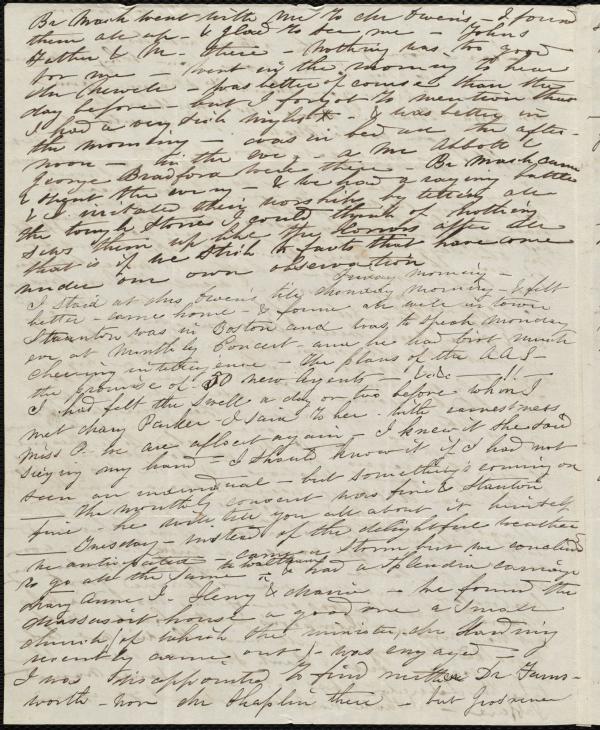 Br Mash went with me to Mr Owens, & found
them all up - & glad to see me - Johns
Father & M. there - Nothing was too good
for me - went in the morning to hear
Mr - was better of course than the
day before - but I forgot to mention that
I had a very sick night - & was better in
the morning - was in bed all the after-
noon - in the eve'g - a Mr Abbott &
George Bradford were there - Br Mash came
& spent the eve'g - & we had a raging battle
& I irritated their worships by telling all
the tough stories I could think of nothing
sews them up like the Horrors after all
that is if we stick to facts that have come
under our own observation
Friday morning -
I staid at Mrs Owen's till Monday morning - & felt
better - came home - & found all well in town
Staunton was in Boston and was to speak Monday
eve at Monthly Concert - and he had brot much
cheering intelligence - the plans of the A A S -
the promise of 50 new Agents - &c &c - !!
I had felt the swell a day or two before when I
met Mary Parker & said to her with earnestness
Miss P. we are afloat again - I knew it she said
my hand - I should know it if I had not
seen an individual - but something's coming on
- The monthly concert was fine & Stanton
fine - he will tell you all about it himself
- Tuesday - instead of the delightful weather
we anticipated - came a storm but we concluded
to go all the same to & had a splendid carriage
Mary Anne, I. Henry & - we found the
Massasoit house a good one a small
church (of which the minister, Mr Harding
recently came out) - was engaged -
I was disappointed to find neither Dr Farns-
worth - nor Mr Chaplin there - but Grosvenor